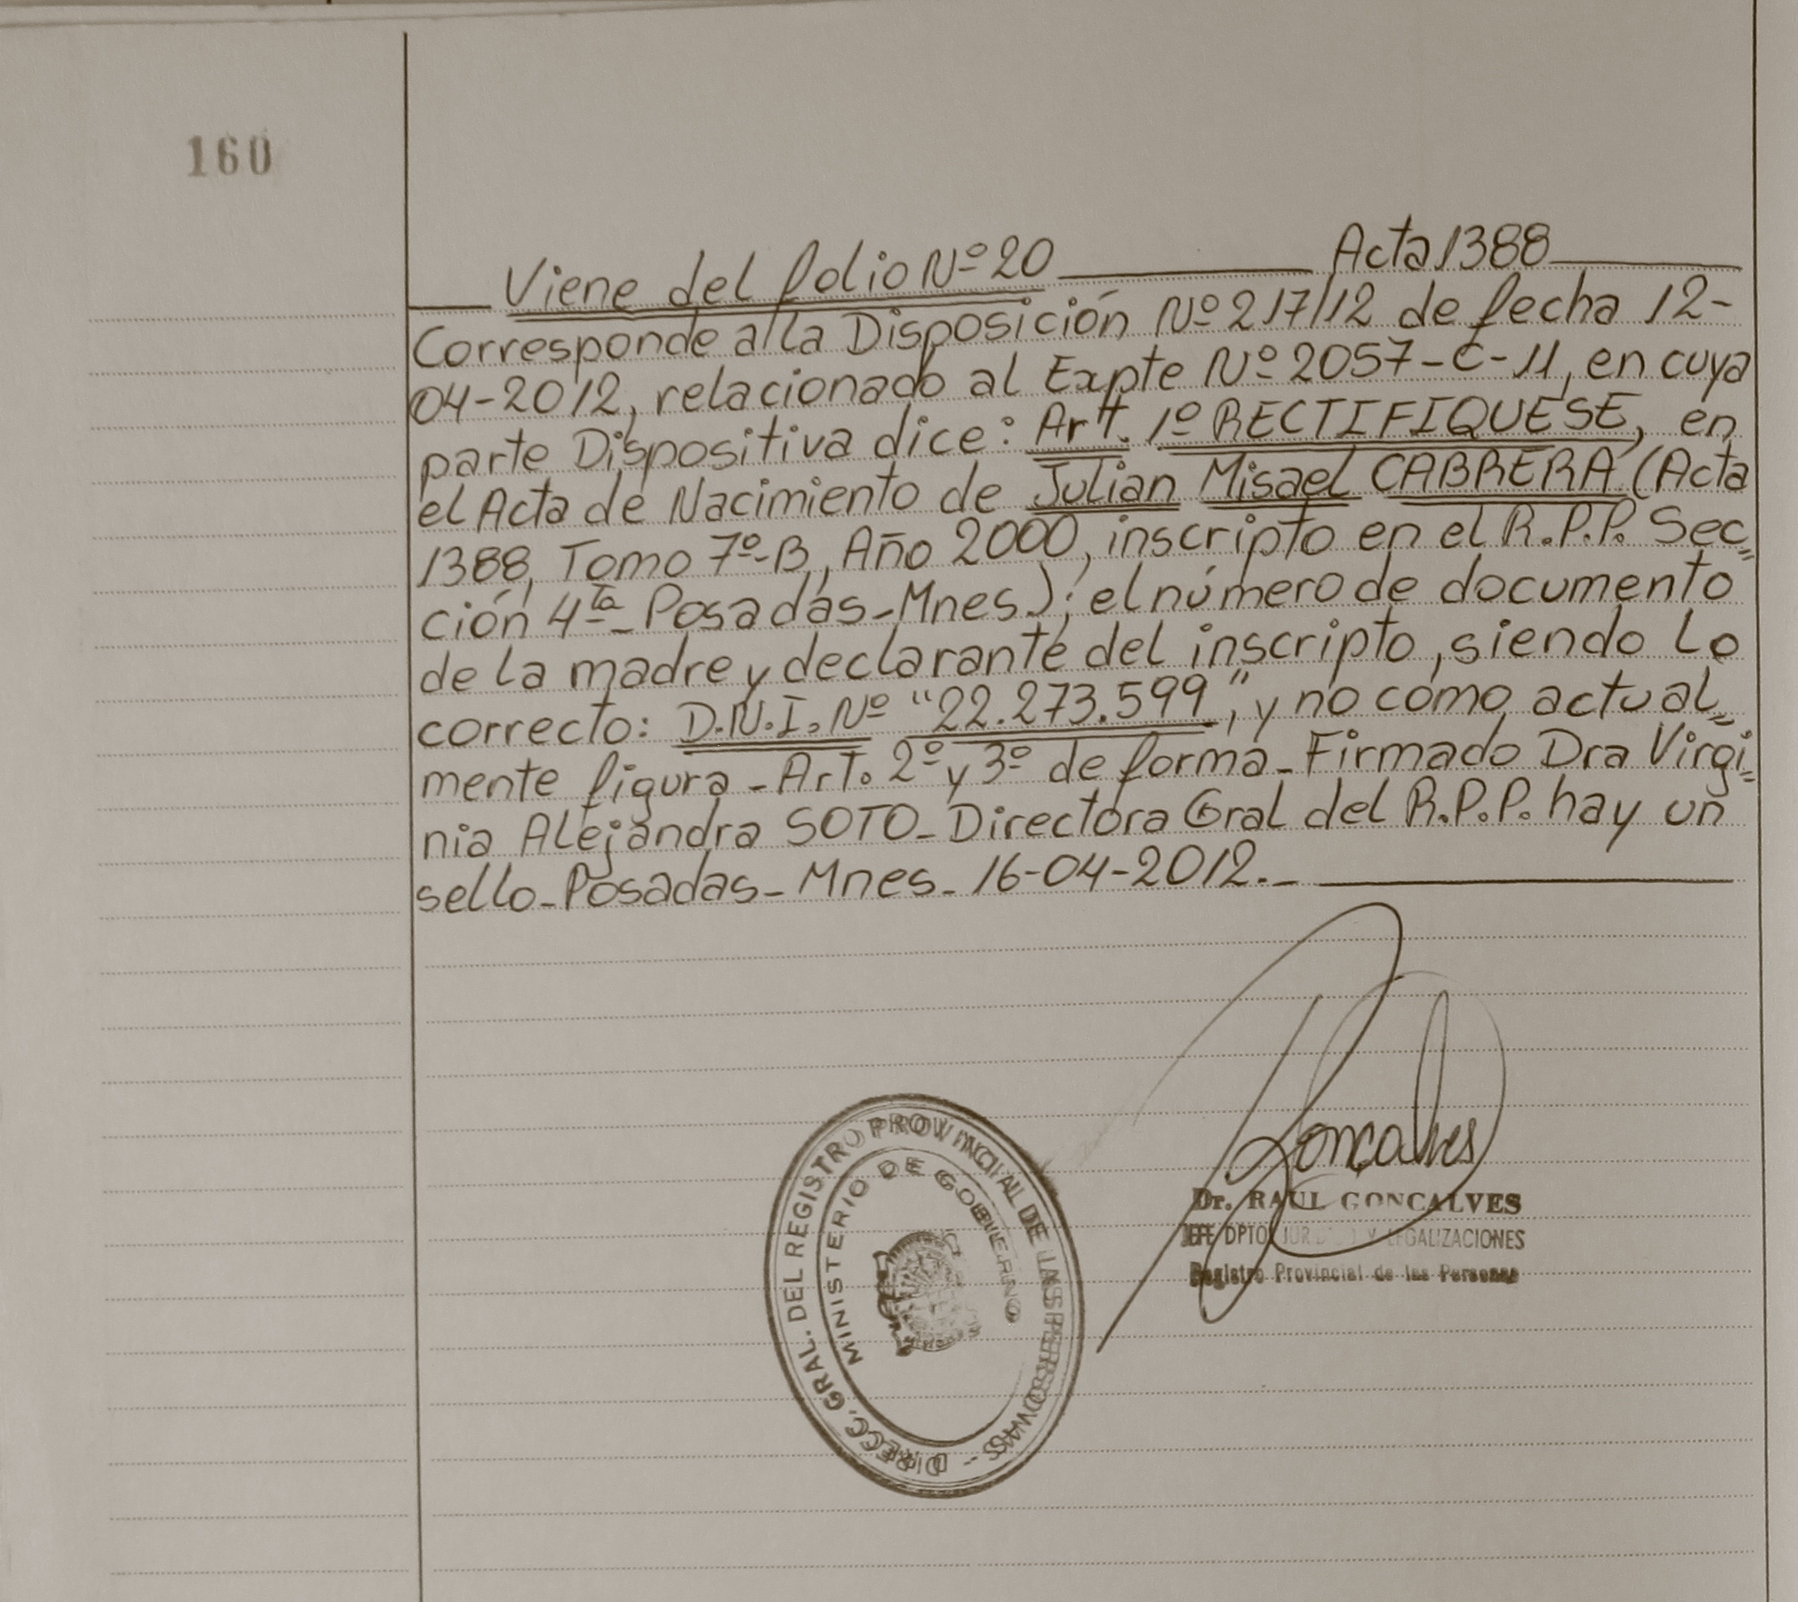 160
Viene del folio Nº 20 Acta 1388
Corresponde a la Disposición Nº 217/12 de fecha 12-
04-2012, relacionado al Expte Nº 2057-C-11, en cuya
parte Dispositiva dice: Art. 1º RECTIFIQUESE, en
el Acta de Nacimiento de Julian Misael CABRERA (Acta
1388, Tomo 7º-B, Año 2000, inscripto en el R.P.P. Sec=
ción 4ta_ Posadas-Mnes.); el número de documento
de la madre y declarante del inscripto, siendo lo
correcto: D.N.I. Nº "22.273.599", y no como actual=
mente figura - Art. 2º y 3º de forma - Firmado Dra Virgi=
nia Alejandra SOTO - Directora Gral del R.P.P. hay un
sello - Posadas - Mnes - 16-04-2012.-
Goncalves
Dr. RAUL GONCALVES
JEFE DPTO JURIDICO Y LEGALIZACIONES
Registro Provincial de las Personas
DIRECC. GRAL. DEL REGISTRO PROVINCIAL DE LAS PERSONAS -
MINISTERIO DE GOBIERNO